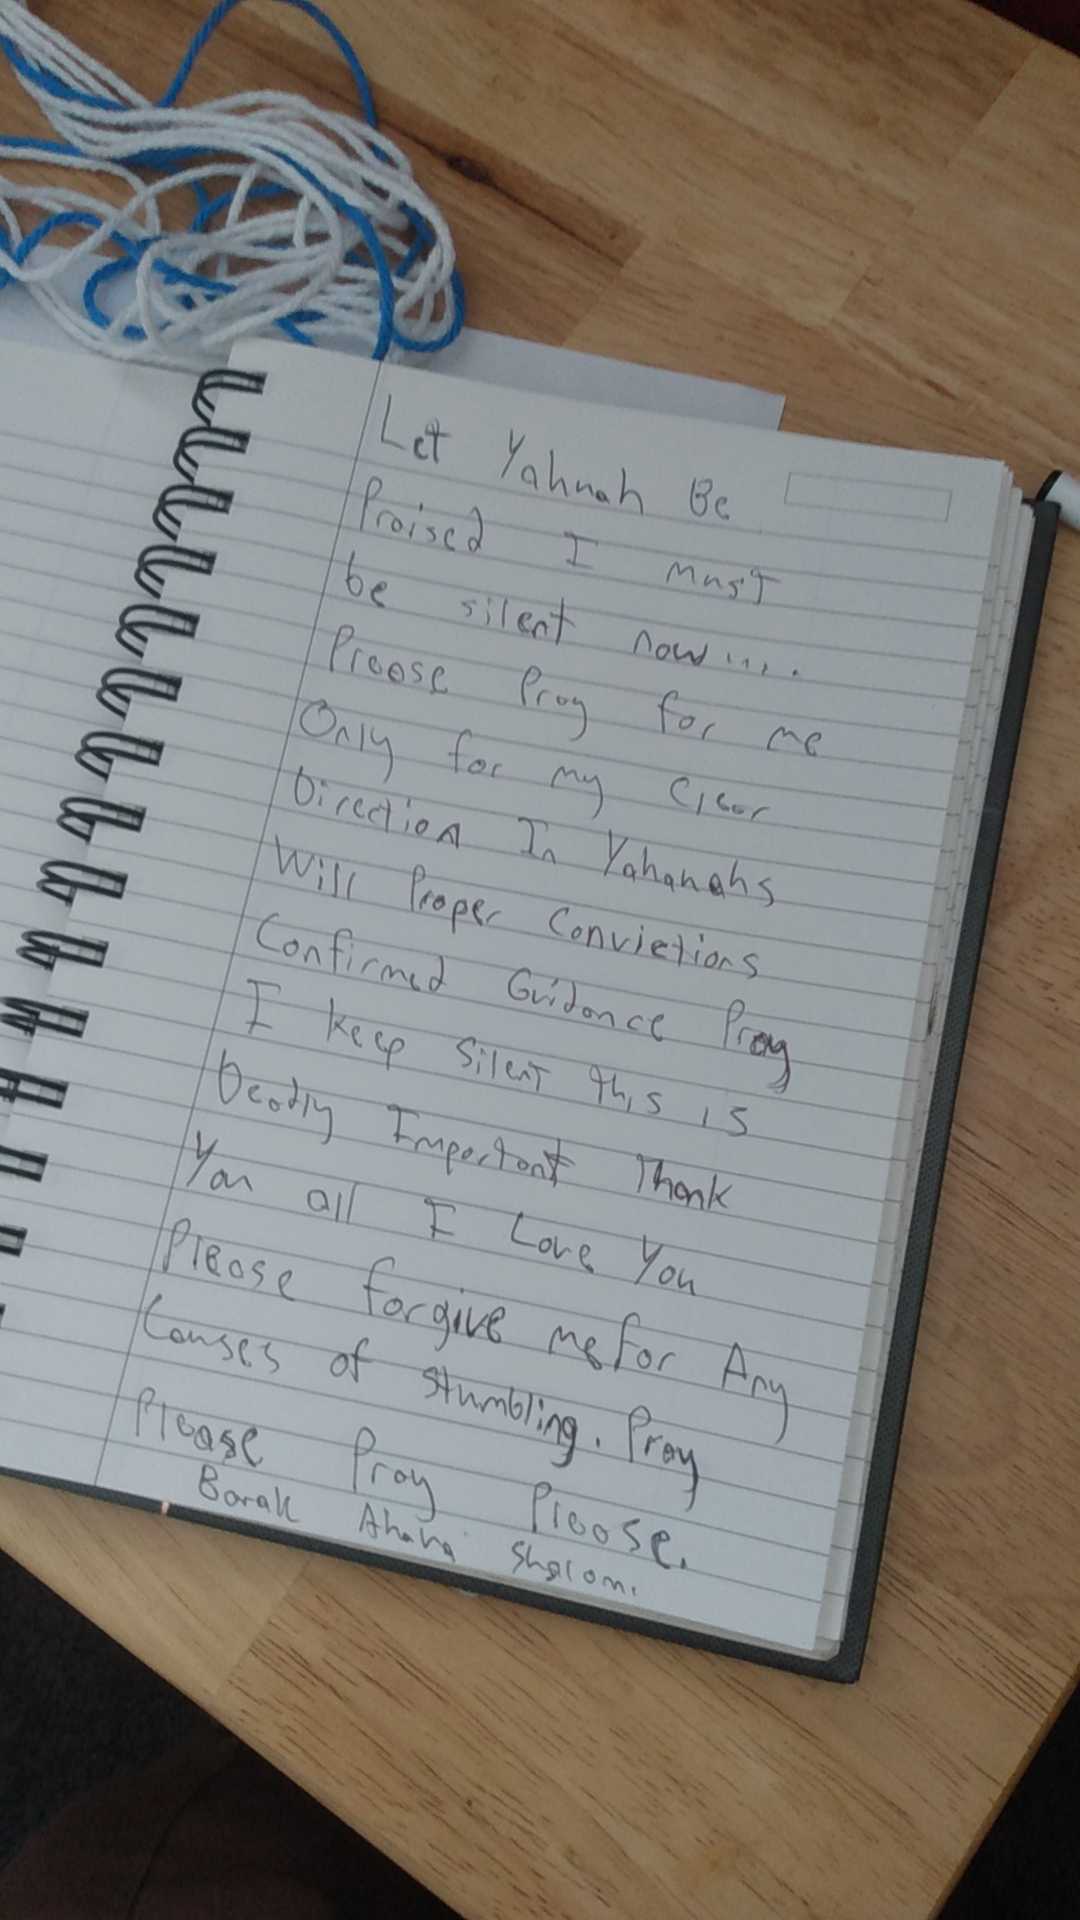 Let Yahuah Be
Praised I must
be silent now.....
Please Pray for me
Only for my Clear
Direction In Yahauahs
Will Proper Convictions
Confirmed Guidance Pray
I keep silent this is
Deadly Important Thank
You all I Love You
Please forgive me for Any
Causes of stumbling. Pray
Please Pray Please.
Barak Ahava Shalom.